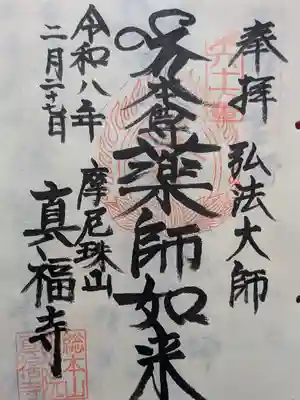 奉拝 弘法大師
本尊薬師如来
摩尼珠山
真福寺
令和八年
二月二十七日